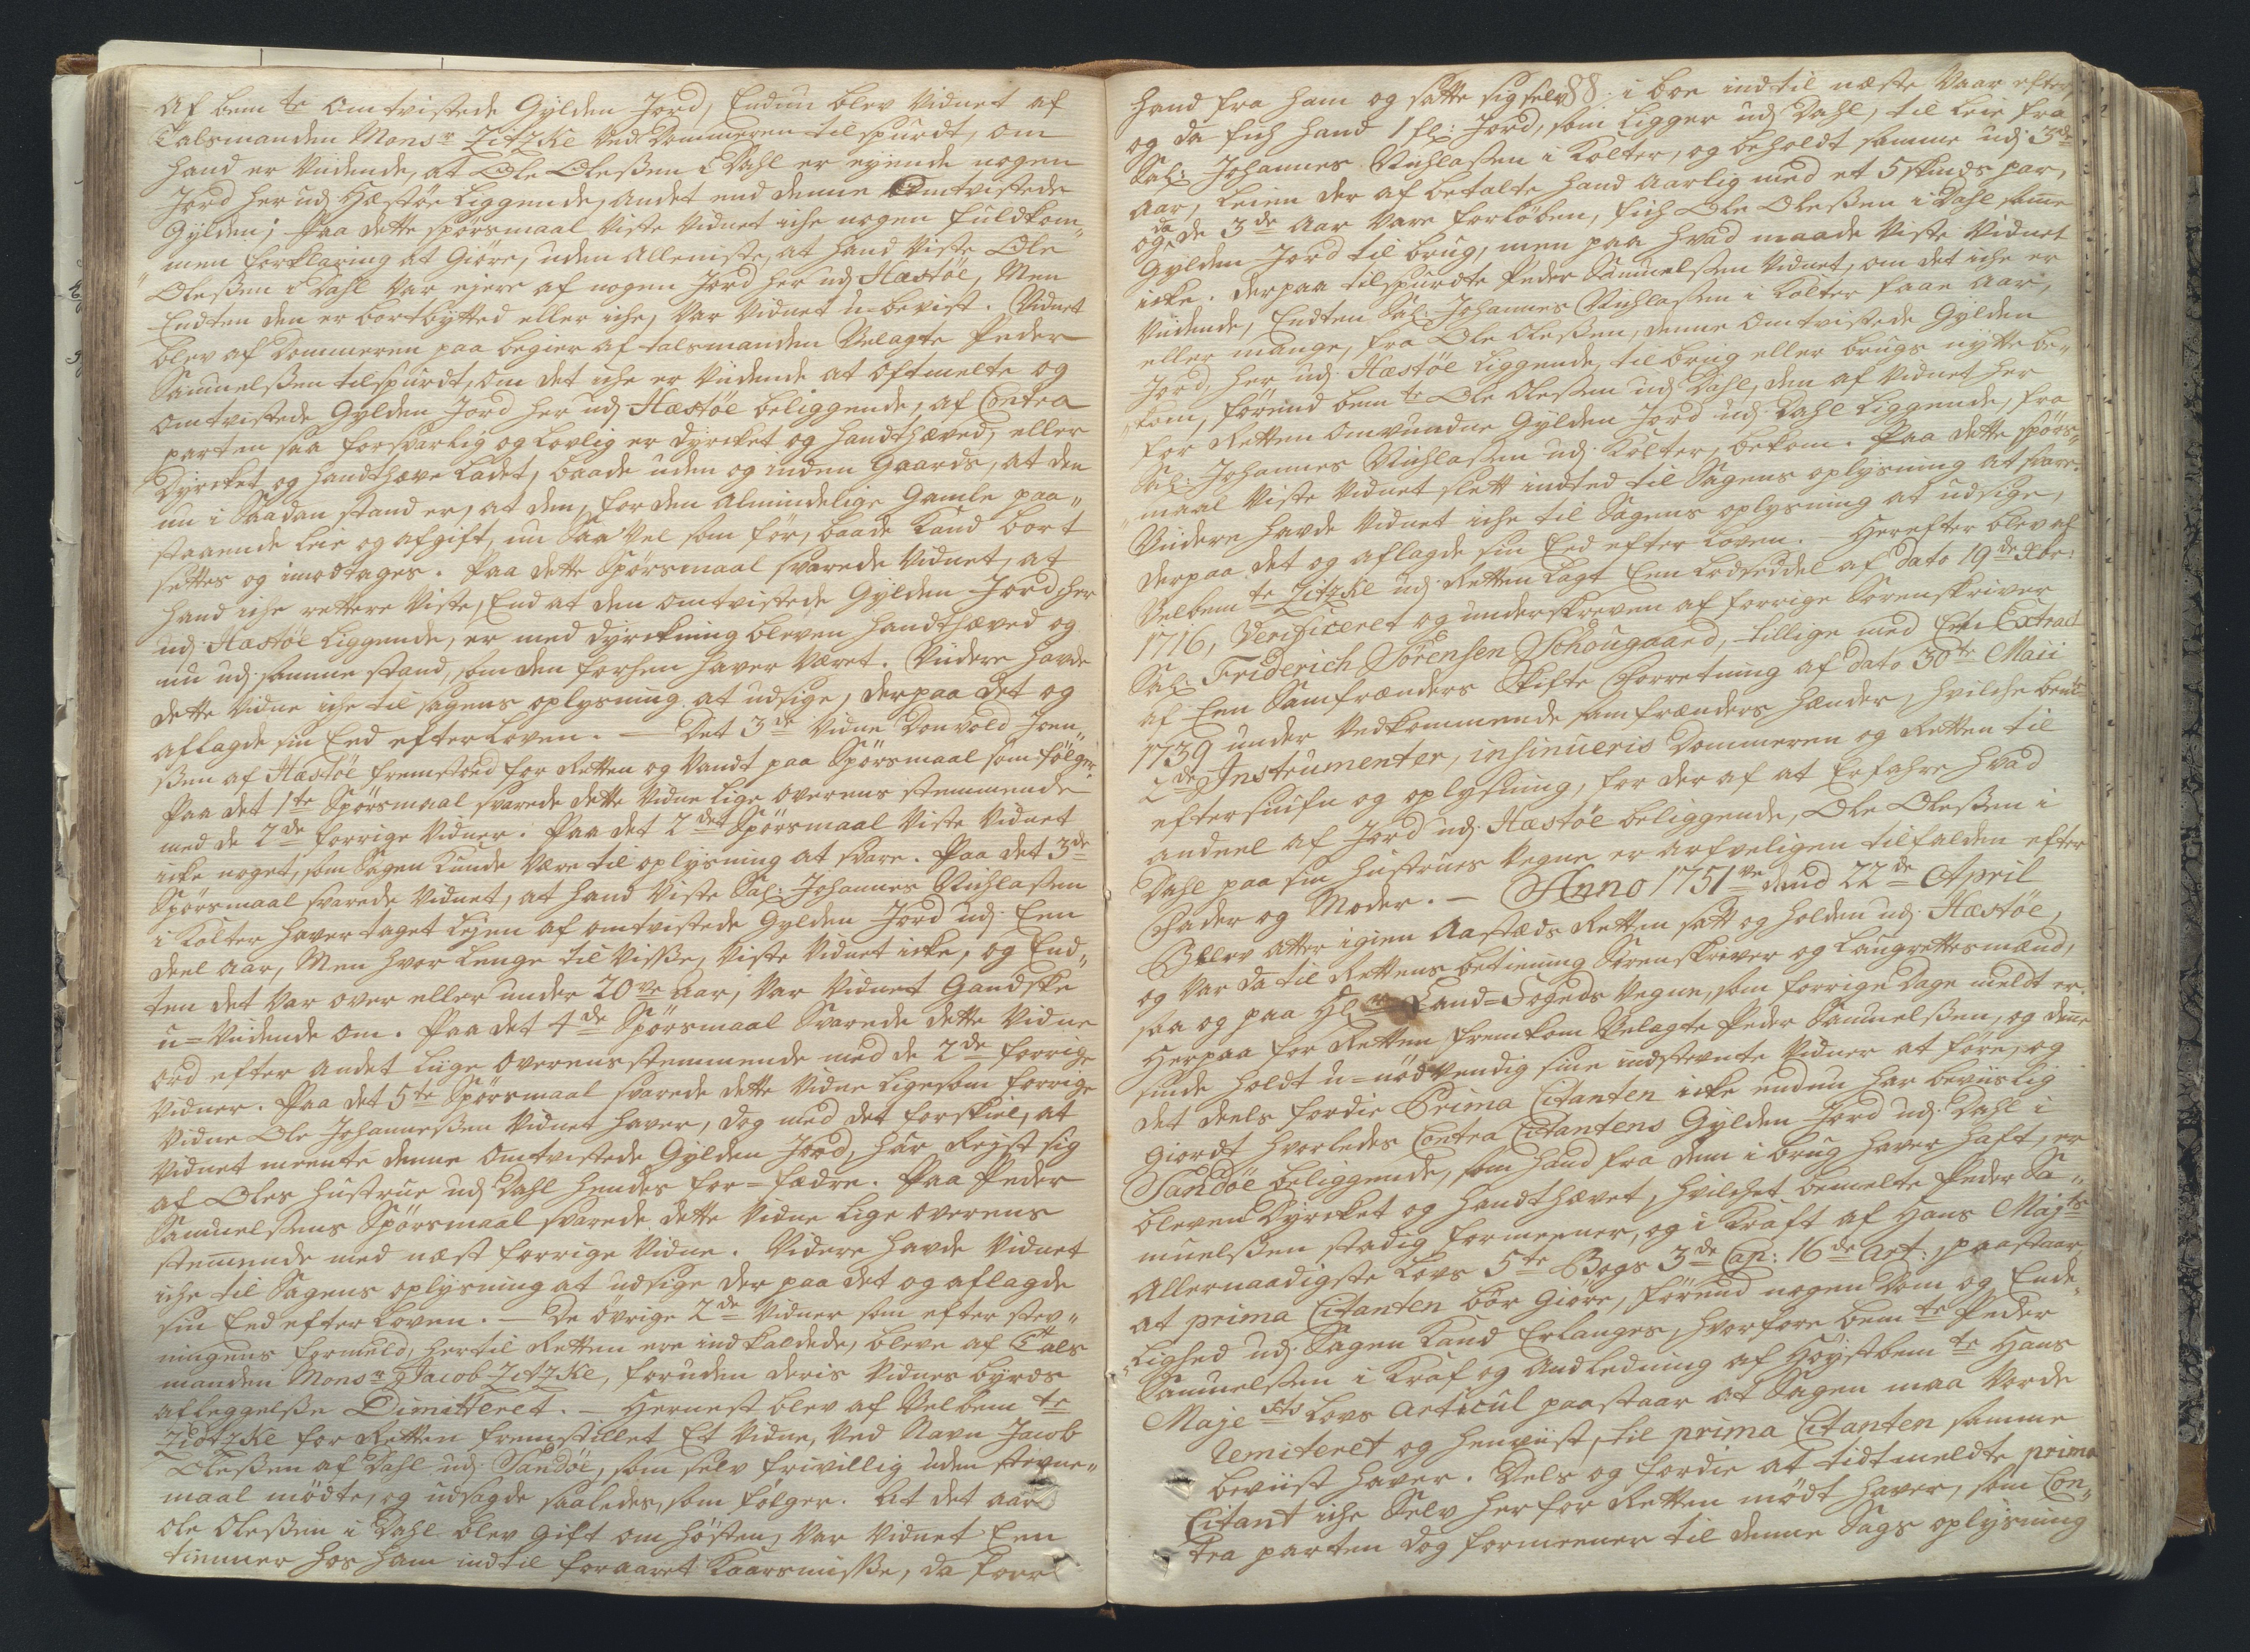 Af bem te omtvistede Gylden Jord, Endnu blev Vidnet af
Talsmanden Mons r Zitzke ved Dommeren tilspurdt, om
hand er Vidende, at Ole Oleßen i Dahl er eyende nogen
Jord her udj Hæstøe liggende, andet end denne Omtvistede
Gylden; Paa dette spørsmaal viste Vidnet iche nogen fuldkom„
„men forklaring at Giøre, uden Alleniste, at hand viste Ole
Oleßen i Dahl var ejere af nogen Jord her udj Hæstøe, Men
Endten den er bortbytted eller iche, var Vidnet u-bevist. Vidnet
blev af Dommeren paa begier af talsmanden Velagte Peder
Samuelßen tilspurdt, om det iche er Vidende at oftmelte og
omtvistede Gylden Jord her udj Hæstøe beliggende, af Contra
parten saa forsvarlig og lovlig er dyrcket og handthæved, eller
dyrcket og handthæve ladet, baade uden og inden Gaards, at den
nu i Saadan stand er, at den, for den almindelige Gamle paa„
staaende leie og afgift, nu Saa vel som før, baade kand bort
settes og imodtages. Paa dette Spørsmaal svarede Vidnet, at
hand iche rettere viste, End at den omtvistede Gylden Jord her
udj Hæstøe liggende, er med dyrckning bleven handthæved og
nu udj samme stand, som den forhen haver været. Viidere havde
dette Vidne iche til sagens oplysning at udsige, derpaa det og
aflagde sin Eed efter Loven. — Det 3 de Vidne Donvold Joen„
ßen af Hæstøe fremstoed for Retten og vandt paa Spørsmaal som følger.
Paa det 1 te Spørsmaal svarede dette Vidne lige overens stemmende
med de 2 de forrige Vidner. Paa det 2 det Spørsmaal viste Vidnet
icke noget, som Sagen kunde være til oplysning at svare. Paa det 3 de
Spørsmaal svarede Vidnet, at hand viste Sal: Johannes Nichlaßen
i Kolter haver taget Leyen af omtvistede Gylden Jord udj Een
deel aar, Men hvor lenge til visße, viste Vidnet icke, og End„
ten det var over eller under 20 ve aar, var Vidnet Gandske
u=Vidende om. Paa det 4 de Spørsmaal Svarede dette Vidne
ord efter andet liige overensstemmende med de 2 de forrige
Vidner. Paa det 5 te Spørsmaal svarede dette Vidne ligesom forrige
Vidne Ole Johanneßen Vidnet haver, dog med det forskiel, at
Vidnet meente denne omtvistede Gylden Jord, har Rejst sig
af Oles hustrue udj Dahl hendes for=fædre. Paa Peder
Samuelßens Spørsmaal svarede dette Vidne lige overens
stemmende med næst forrige Vidne. Videre havde Vidnet
iche til Sagens oplysning at udsige der paa det og aflagde
sin Eed efter Loven. — De øvrige 2 de Vidner som efter stev„
ningens formeld, hertil Retten ere indkaldede, bleve af Tals
manden Mons r Jacob Zitzke, foruden deris Vidnes byrds
afleggelße Dimitteret. — Hernest blev af Velbem te
Zidtzke for Retten fremstillet Et Vidne, ved Navn Jacob
Oleßen af Dahl udj Sandøe, som selv frivillig uden stevne„
maal mødte, og udsagde saaledes, som følger. At det aar
Ole Oleßen i Dahl blev gift om høsten, var Vidnet Een
tienner hos ham indtil foraaret Kaarsmisße, da foer
hand fra ham og satte sig selv 88 i boe indtil næste Vaar efter
og da fich hand 1 fl: Jord, som ligger udj Dahl, til leie fra
Sal: Johannes Nichlaßen i Kolter, og beholdt samme udj 3 de
aar, leien der af betalte hand aarlig med et 5 skinds par,
og da de 3 de aar vare forløben, fich Ole Oleßen i Dahl samme
Gylden Jord til brug, men paa hvad maade viste Vidnet
icke. Derpaa tilspurdte Peder Samuelßen Vidnet, om det iche er
Viidende, Endten Sal: Johannes Nichlaßen i Kolter faae aar,
eller mange, fra Ole Oleßen, denne omtvistede Gylden
Jord, her udj Hæstøe liggende, til brug eller brugs nytte be„
„kom, førend bem te Ole Oleßen udj Dahl, den af Vidnet her
for Retten omvundne Gylden Jord udj Dahl liggende, fra
Sal: Johannes Nichlaßen udj Kolter, bekom. Paa dette spørs„
„maal viste Vidnet slett inted til Sagens oplysning at svare.
Viidere havde Vidnet iche til Sagens oplysning at udsige,
derpaa det og aflagde sin Eed efter Loven. — Herefter blev af
Velbem te Zitzke udj Retten lagt Een Lodseddel af dato 19 de Xbr:
1716, Verificeret og underskreven af forrige Sorenskriver
Sal: Friderich Sørensen Schougaard, tillige med Een Extract
af Een Samfrænders Skifte Forretning af dato 30 te Maii
1739 under vedkommende samfrænders hænder, hvilche bemte
2 de Instrumenter, insinueris Dommeren og Retten til
eftersiufn og oplysning, for der af at Erfahre hvad
andeel af Jord udj Hæstøe beliggende, Ole Oleßen i
Dahl paa sin Hustrues vegne er arfveligen tilfalden efter
Fader og Moder. — Anno 1751 ve dend 22 de April
Blev atter igien Aastæds Retten satt og holden udj Hæstøe,
og var da til Rettens betiening Sorenskriver og Laugrettesmænd,
saa og paa Hl r Land=Fogeds vegne, som forrige dage meldt er.
Herpaa for Retten fremkom Velagte Peder Samuelßen, og denne
sinde holdt u=nødvendig sine indstevnte Vidner at føre, og
det deels fordie Prima Citanten icke endnu har beviislig
giordt hvorledes Contra Citantens Gylden Jord udj Dahl i
Sandøe beliggende, som hand fra dem i brug haver haft, er
bleven dyrcket og handthævet, hvilchet bemelte Peder Sa„
muelßen stadig formeener, og i Kraft af Hans Maj ts
Allernaadigste Lovs 5 te Bogs 3 de Cap: 16 de Art: paastaar,
at prima Citanten bør giøre, førend nogen Dom og Ende„
„lighed udj Sagen kand Erlanges, hvorfore bem te Peder
Samuelßen i Kraf og Andledning af Høystbem te Hans
Maje sts Lovs Articul paastaar at Sagen maa vorde
remiteret og henviist, til prima Citanten samme
beviist haver. Dels og fordie at tidtmeldte prima
Citant iche Selv her for Retten mødt haver, som Con„
tra parten dog formeener til denne Sags oplysning